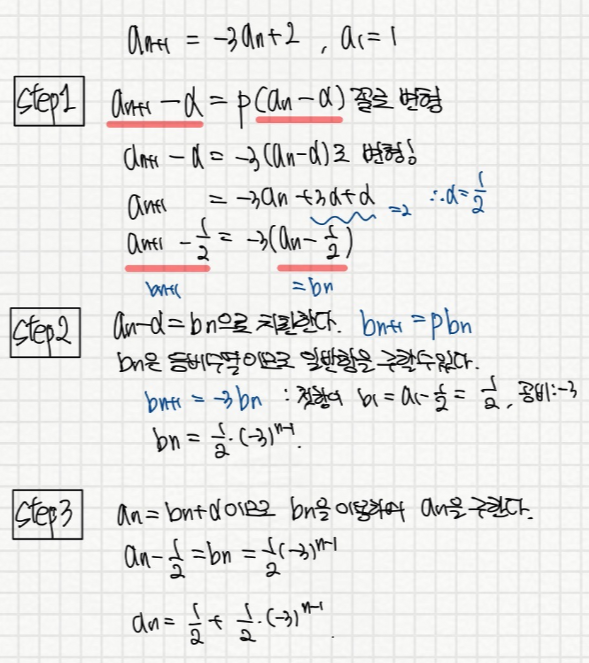 aₙ₊₁ = -3aₙ+2 , a₁=1
Step1 aₙ₊₁ - α = p(aₙ - α) 꼴로 변형
aₙ₊₁ - α = -3(aₙ-α)로 변형!
aₙ₊₁ = -3aₙ +3α+α =2 ∴α=1/2
aₙ₊₁ - 1/2 = -3(aₙ - 1/2)
bₙ₊₁ =bₙ
Step2 aₙ-α=bₙ으로 치환한다. bₙ₊₁ = pbₙ
bₙ은 등비수열이므로 일반항을 구할수있다.
bₙ₊₁ = -3bₙ : 첫항이 b₁=a₁-1/2 = 1/2, 공비:-3
bₙ = 1/2·(-3)ⁿ⁻¹.
Step3 aₙ=bₙ+α이므로 bₙ을 이용하여 aₙ을 구한다.
aₙ-1/2 =bₙ = 1/2(-3)ⁿ⁻¹
aₙ = 1/2 + 1/2·(-3)ⁿ⁻¹.